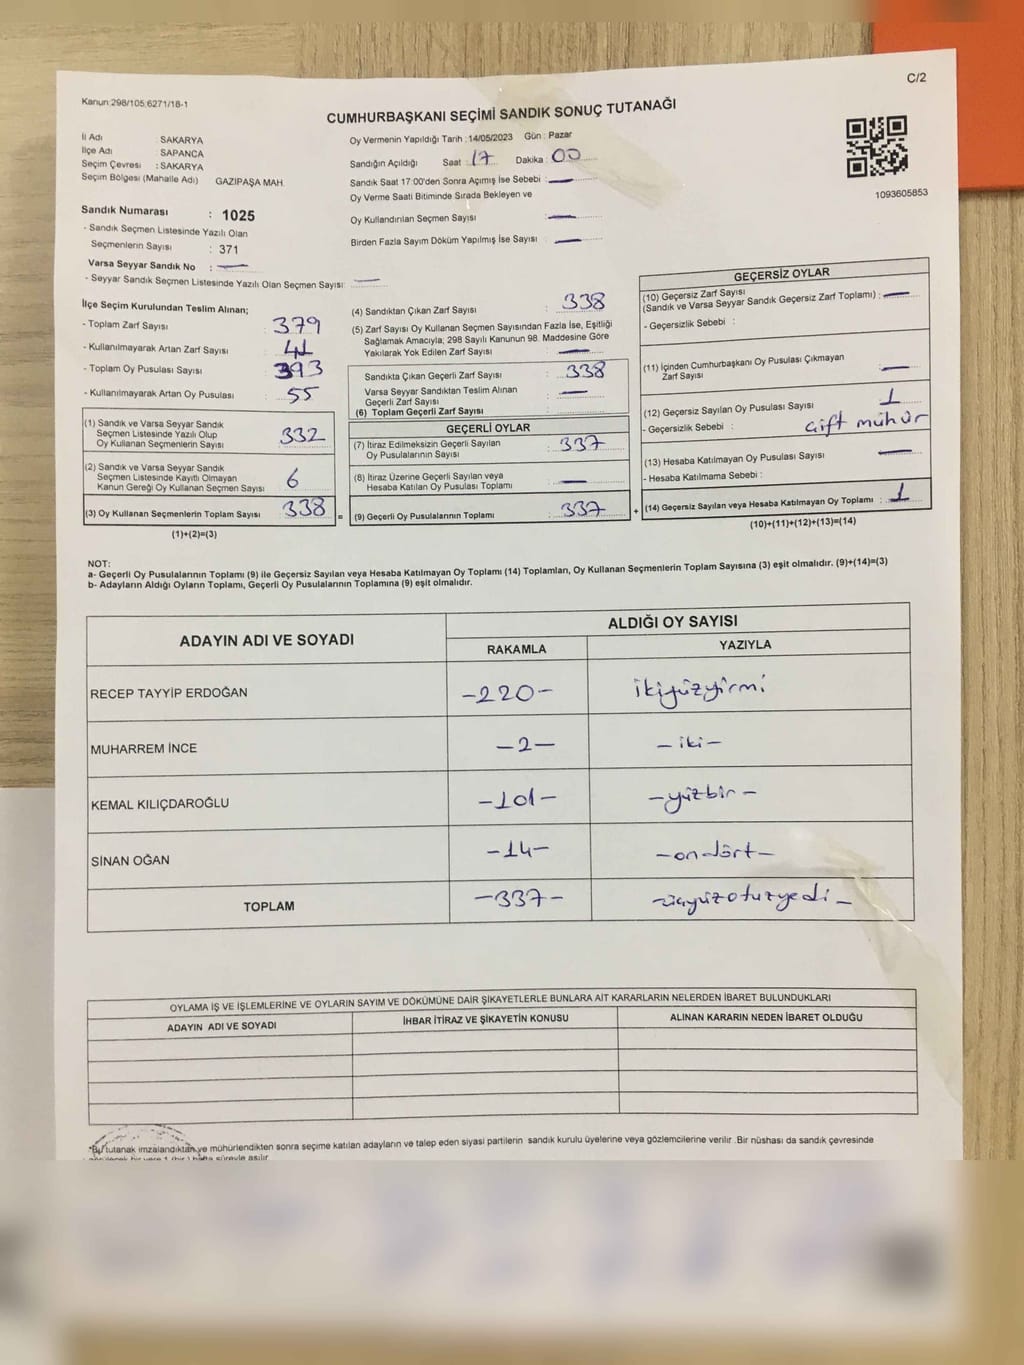 C/2
Kanun:298/105,6271/18-1
CUMHURBAŞKANI SEÇİMİ SANDIK SONUÇ TUTANAĞI
İl Adı : SAKARYA
İlçe Adı : SAPANCA
Seçim Çevresi : SAKARYA
Seçim Bölgesi (Mahalle Adı) GAZİPAŞA MAH.
Sandık Numarası : 1025
- Sandık Seçmen Listesinde Yazılı Olan
Seçmenlerin Sayısı : 371
Varsa Seyyar Sandık No : —
- Seyyar Sandık Seçmen Listesinde Yazılı Olan Seçmen Sayısı: —
Oy Vermenin Yapıldığı Tarih : 14/05/2023 Gün : Pazar
Sandığın Açıldığı Saat : 17 Dakika : 00
Sandık Saat 17:00'den Sonra Açımış İse Sebebi : —
Oy Verme Saati Bitiminde Sırada Bekleyen ve
Oy Kullandırılan Seçmen Sayısı : —
Birden Fazla Sayım Döküm Yapılmış İse Sayısı : —
1093605853
İlçe Seçim Kurulundan Teslim Alınan;
- Toplam Zarf Sayısı : 379
- Kullanılmayarak Artan Zarf Sayısı : 41
- Toplam Oy Pusulası Sayısı : 393
- Kullanılmayarak Artan Oy Pusulası : 55
(1) Sandık ve Varsa Seyyar Sandık
Seçmen Listesinde Yazılı Olup
Oy Kullanan Seçmenlerin Sayısı : 332
(2) Sandık ve Varsa Seyyar Sandık
Seçmen Listesinde Kayıtlı Olmayan
Kanun Gereği Oy Kullanan Seçmen Sayısı : 6
(3) Oy Kullanan Seçmenlerin Toplam Sayısı : 338 =
(1)+(2)=(3)
(4) Sandıktan Çıkan Zarf Sayısı : 338
(5) Zarf Sayısı Oy Kullanan Seçmen Sayısından Fazla İse, Eşitliği
Sağlamak Amacıyla; 298 Sayılı Kanunun 98. Maddesine Göre
Yakılarak Yok Edilen Zarf Sayısı : —
Sandıkta Çıkan Geçerli Zarf Sayısı : 338
Varsa Seyyar Sandıktan Teslim Alınan
Geçerli Zarf Sayısı : —
(6) Toplam Geçerli Zarf Sayısı :
GEÇERLİ OYLAR
(7) İtiraz Edilmeksizin Geçerli Sayılan
Oy Pusulalarının Sayısı : 337
(8) İtiraz Üzerine Geçerli Sayılan veya
Hesaba Katılan Oy Pusulası Toplamı : —
(9) Geçerli Oy Pusulalarının Toplamı : 337 +
GEÇERSİZ OYLAR
(10) Geçersiz Zarf Sayısı
(Sandık ve Varsa Seyyar Sandık Geçersiz Zarf Toplamı) : —
- Geçersizlik Sebebi :
(11) İçinden Cumhurbaşkanı Oy Pusulası Çıkmayan
Zarf Sayısı : —
(12) Geçersiz Sayılan Oy Pusulası Sayısı : 1
- Geçersizlik Sebebi : Çift mühür
(13) Hesaba Katılmayan Oy Pusulası Sayısı : —
- Hesaba Katılmama Sebebi :
(14) Geçersiz Sayılan veya Hesaba Katılmayan Oy Toplamı : 1
(10)+(11)+(12)+(13)=(14)
NOT:
a- Geçerli Oy Pusulalarının Toplamı (9) ile Geçersiz Sayılan veya Hesaba Katılmayan Oy Toplamı (14) Toplamları, Oy Kullanan Seçmenlerin Toplam Sayısına (3) eşit olmalıdır. (9)+(14)=(3)
b- Adayların Aldığı Oyların Toplamı, Geçerli Oy Pusulalarının Toplamına (9) eşit olmalıdır.
ADAYIN ADI VE SOYADI ALDIĞI OY SAYISI
RAKAMLA YAZIYLA
RECEP TAYYİP ERDOĞAN -220- ikiyüzyirmi
MUHARREM İNCE -2- -iki-
KEMAL KILIÇDAROĞLU -101- -yüzbir-
SİNAN OĞAN -14- -ondört-
TOPLAM -337- -üçyüzotuzyedi-
OYLAMA İŞ VE İŞLEMLERİNE VE OYLARIN SAYIM VE DÖKÜMÜNE DAİR ŞİKAYETLERLE BUNLARA AİT KARARLARIN NELERDEN İBARET BULUNDUKLARI
ADAYIN ADI VE SOYADI İHBAR İTİRAZ VE ŞİKAYETİN KONUSU ALINAN KARARIN NEDEN İBARET OLDUĞU
*Bu tutanak imzalandıktan ve mühürlendikten sonra seçime katılan adayların ve talep eden siyasi partilerin sandık kurulu üyelerine veya gözlemcilerine verilir. Bir nüshası da sandık çevresinde